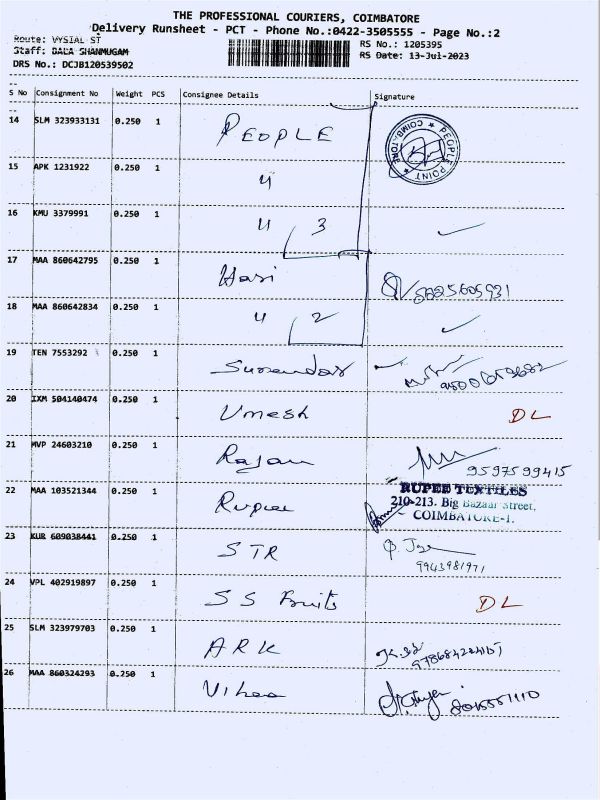 THE PROFESSIONAL COURIERS, COIMBATORE
Delivery Runsheet - PCT - Phone No.:0422-3505555 - Page No.:2
Route: VYSIAL ST
RS No.: 1205395
Staff: BALA SHANMUGAM
RS Date: 13-Jul-2023
DRS No.: DCJB120539502
S No Consignment No Weight PCS Consignee Details Signature
14 SLM 323933131 0.250 1 PEOPLE
PEOPLE POINT * COIMBATORE *
15 APK 1231922 0.250 1 ״
16 KMU 3379991 0.250 1 ״ 3 ✓
17 MAA 860642795 0.250 1 Hari
18 MAA 860642834 0.250 1 ״ 2 ✓
19 TEN 7553292 0.250 1 Surendar ✓
20 IXM 504140474 0.250 1 Umesh DL
21 MVP 24603210 0.250 1 Rajan 9597599415
22 MAA 103521344 0.250 1 Rupee
RUPEE TEXTILES
210-213. Big Bazaar Street,
COIMBATORE-1.
23 KUR 609038441 0.250 1 STR
9943981971
24 VPL 402919897 0.250 1 SS Fruits DL
25 SLM 323979703 0.250 1 ARK
26 MAA 860324293 0.250 1